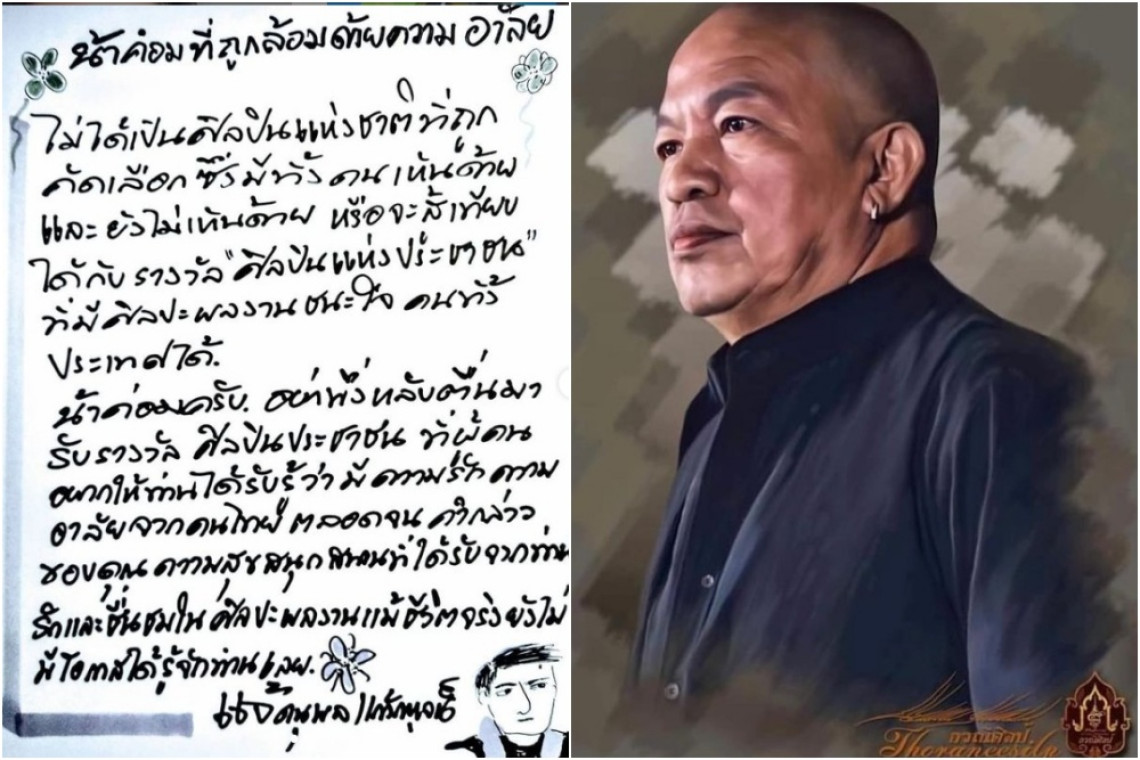 น้าค่อมที่ถูกล้อมด้วยความอาลัย
ไม่ได้เป็นศิลปินแห่งชาติที่ถูก
คัดเลือก ซึ่งมีทั้งคนเห็นด้วย
และยังไม่เห็นด้วย หรือจะสู้เทียบ
ได้กับรางวัล"ศิลปินแห่งประชาชน"
ที่มีศิลปะผลงานชนะใจ คนทั้ง
ประเทศได้.
น้าค่อมครับ. อย่าพึ่งหลับตื่นมา
รับรางวัล ศิลปินประชาชน ที่ผู้คน
อยากให้ท่านได้รับรู้ว่ามีความรักความ
อาลัยจากคนไทย ตลอดจน คำกล่าว
ขอบคุณ ความสุขสนุกสนานที่ได้รับจากท่าน
รักและชื่นชมในศิลปะผลงานแม้ชีวิตจริงยังไม่
มีโอกาสได้รู้จักท่านเลย.
แจ้
Thoraneesilp